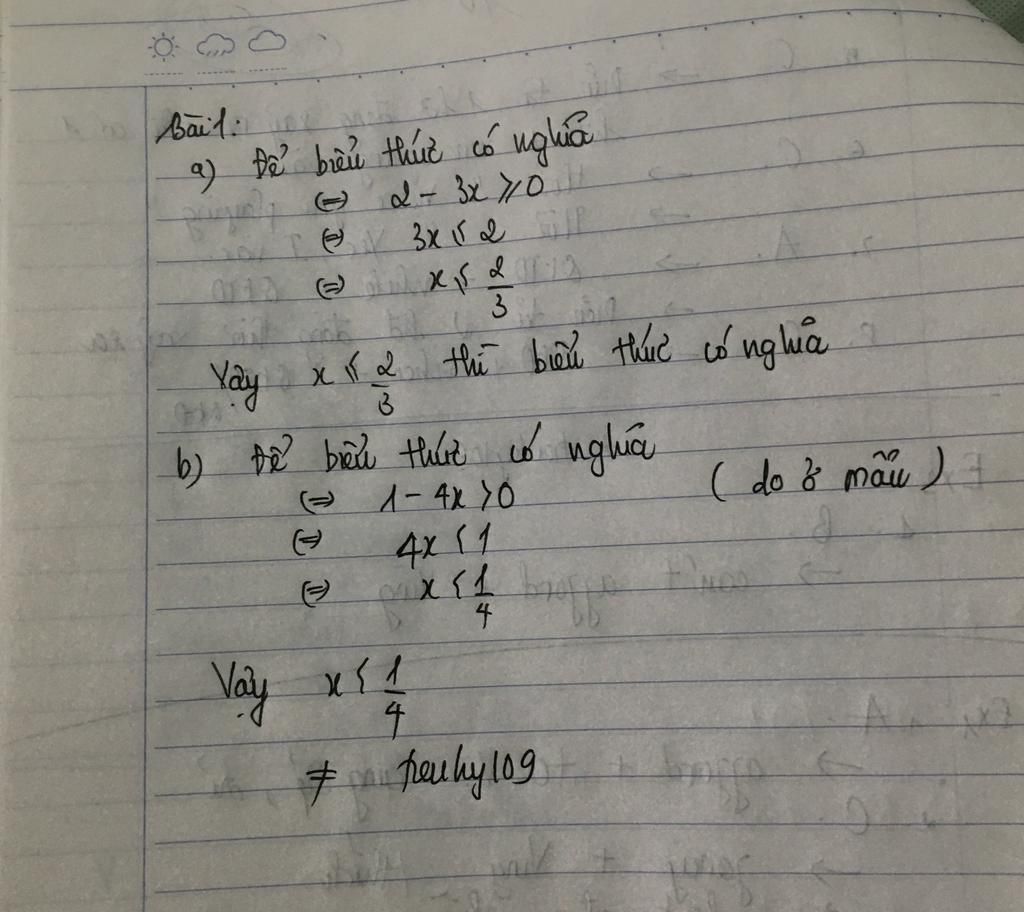 Bài 1:
a) Để biểu thức có nghĩa
(=) 2 - 3x ≥ 0
(=) 3x ≤ 2
(=) x ≤ 2/3
Vậy x ≤ 2/3 thì biểu thức có nghĩa
b) Để biểu thức có nghĩa
(=) 1 - 4x > 0 (do ở mẫu)
(=) 4x < 1
(=) x < 1/4
Vậy x < 1/4
≠ peuhy109